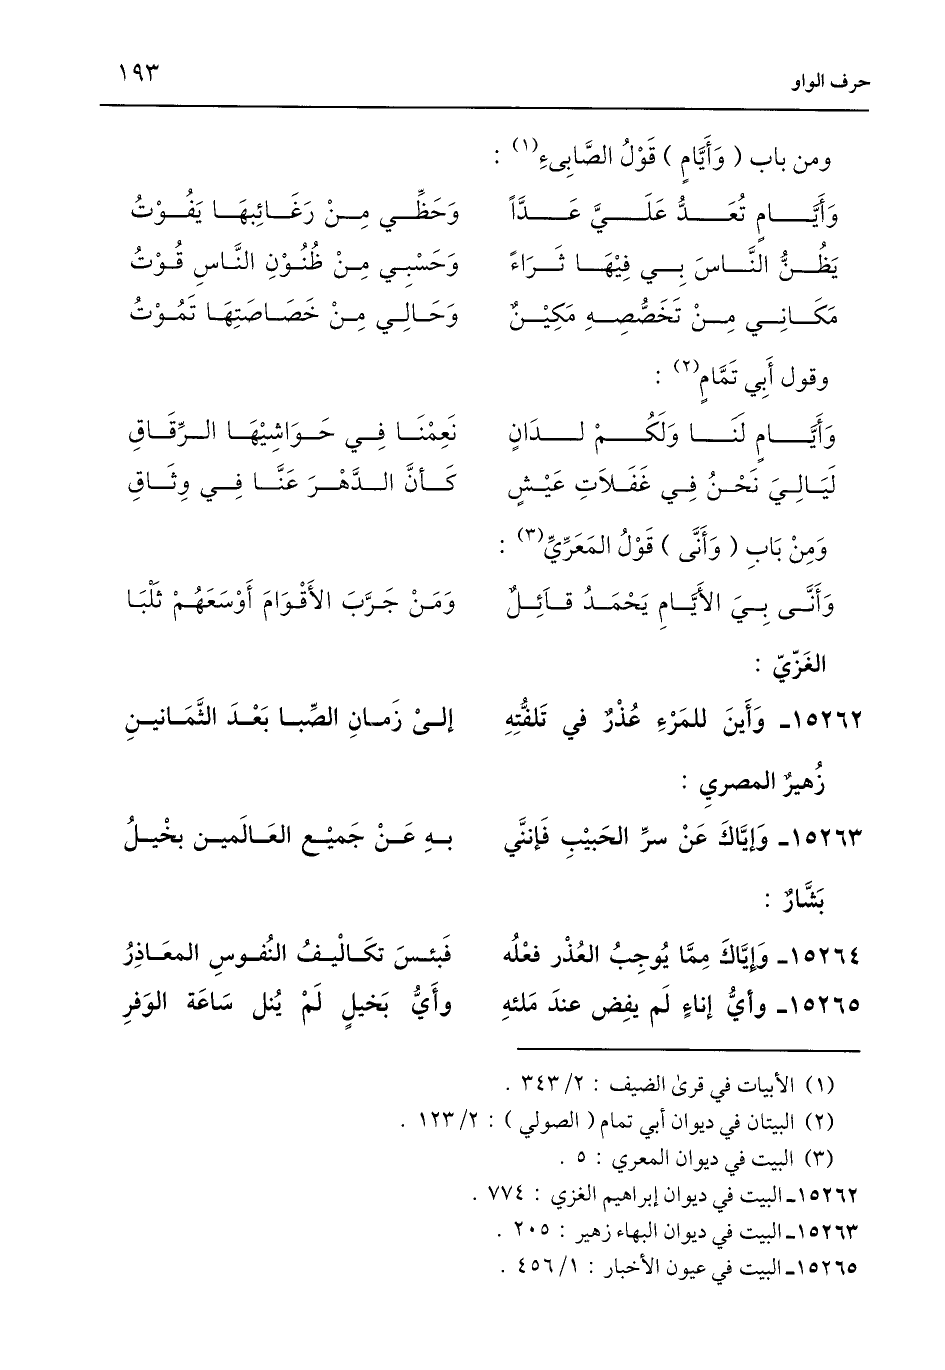 حرف الواو ١٩٣
ومن باب ( وَأَيَّامٍ ) قَوْلُ الصَّابِىءِ(١) :
وَأَيَّـــامٍ تُعَـــدُّ عَلَـــيَّ عَـــدَّاً وَحَظِّـي مِـنْ رَغَـائِبِهَـا يَفُـوْتُ
يَظُـنُّ النَّـاسَ بِـي فِيْهَـا ثَـرَاءً وَحَسْبِـي مِـنْ ظُنُـوْنِ النَّـاسِ قُـوْتُ
مَكَـانِـي مِـنْ تَخَصُّصِـهِ مَكِيْـنٌ وَحَـالِـي مِـنْ خَصَـاصَتِهَـا تَمُـوْتُ
وقول أَبِي تَمَّامٍ(٢) :
وَأَيَّـــامٍ لَنَـــا وَلَكُـــمْ لِـــدَانٍ نَعِمْنَـا فِـي حَـوَاشِيْهَـا الـرِّقَـاقِ
لَيَـالِـيَ نَحْـنُ فِـي غَفَـلَاتِ عَيْـشٍ كَـأنَّ الـدَّهْـرَ عَنَّـا فِـي وِثَـاقِ
وَمِنْ بَابِ ( وَأَنَّى ) قَوْلُ المَعَرِّيِّ(٣) :
وَأَنَّـى بِـيَ الأَيَّـامِ يَحْمَـدُ قـائِـلٌ وَمَـنْ جَـرَّبَ الأَقْـوَامَ أَوْسَعَهُـمْ ثَلْبَـا
الغَزّيّ :
١٥٢٦٢ـ وَأَينَ للمَرْءِ عُذْرٌ في تَلفُّتِهِ إلىٰ زَمـانِ الصِّبـا بَعْـدَ الثَّمَـانيـن
زُهيرٌ المصري :
١٥٢٦٣ـ وَإيَّاكَ عَنْ سرِّ الحَبيْبِ فَإننَّي بـهِ عَـنْ جَميْـع العَـالَميـن بخْيـلُ
بَشَّارٌ :
١٥٢٦٤ـ وَإِيَّاكَ مِمَّا يُوجِبُ العُذْر فعْلُه فَبئـسَ تكَـالْيـفُ النُفـوسِ المعَـاذِرُ
١٥٢٦٥ـ وأيُّ إناءٍ لَم يفِض عندَ مَلئهِ وأَيُّ بَخيلٍ لَمْ يُنل سَاعَة الوَفرِ
(١) الأبيات في قرىٰ الضيف : ٣٤٣/٢ .
(٢) البيتان في ديوان أبي تمام ( الصولي ) : ١٢٣/٢ .
(٣) البيت في ديوان المعري : ٥ .
١٥٢٦٢ـ البيت في ديوان إبراهيم الغزي : ٧٧٤ .
١٥٢٦٣ـ البيت في ديوان البهاء زهير : ٢٠٥ .
١٥٢٦٥ـ البيت في عيون الأخبار : ٤٥٦/١ .